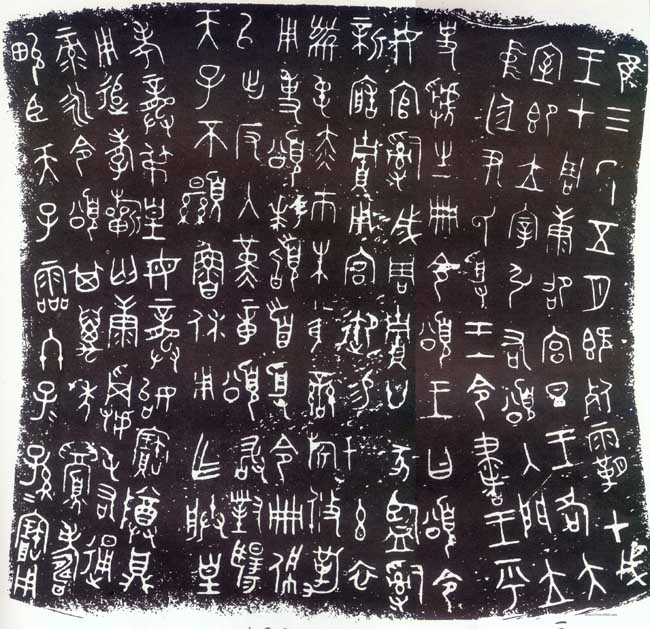 隹三年五月既死霸甲戌
王才周康卲宮旦王各大
室即立宰引右頌入門立
中廷尹氏受王令書王乎
史虢生冊令頌王曰頌令
女官𤔲成周貯廿家監𤔲
新造貯用宮御易女玄衣
黹屯赤巿朱黃䜌旂攸勒
用事頌拜稽首受令冊佩
以出反入堇章頌敢對揚
天子不顯魯休用乍朕皇
考龏弔皇母龏始寶尊鼎
用追孝祈匃康𠭯屯右通
彔永令頌其萬年眉壽
畯臣天子霝冬子=孫=寶用